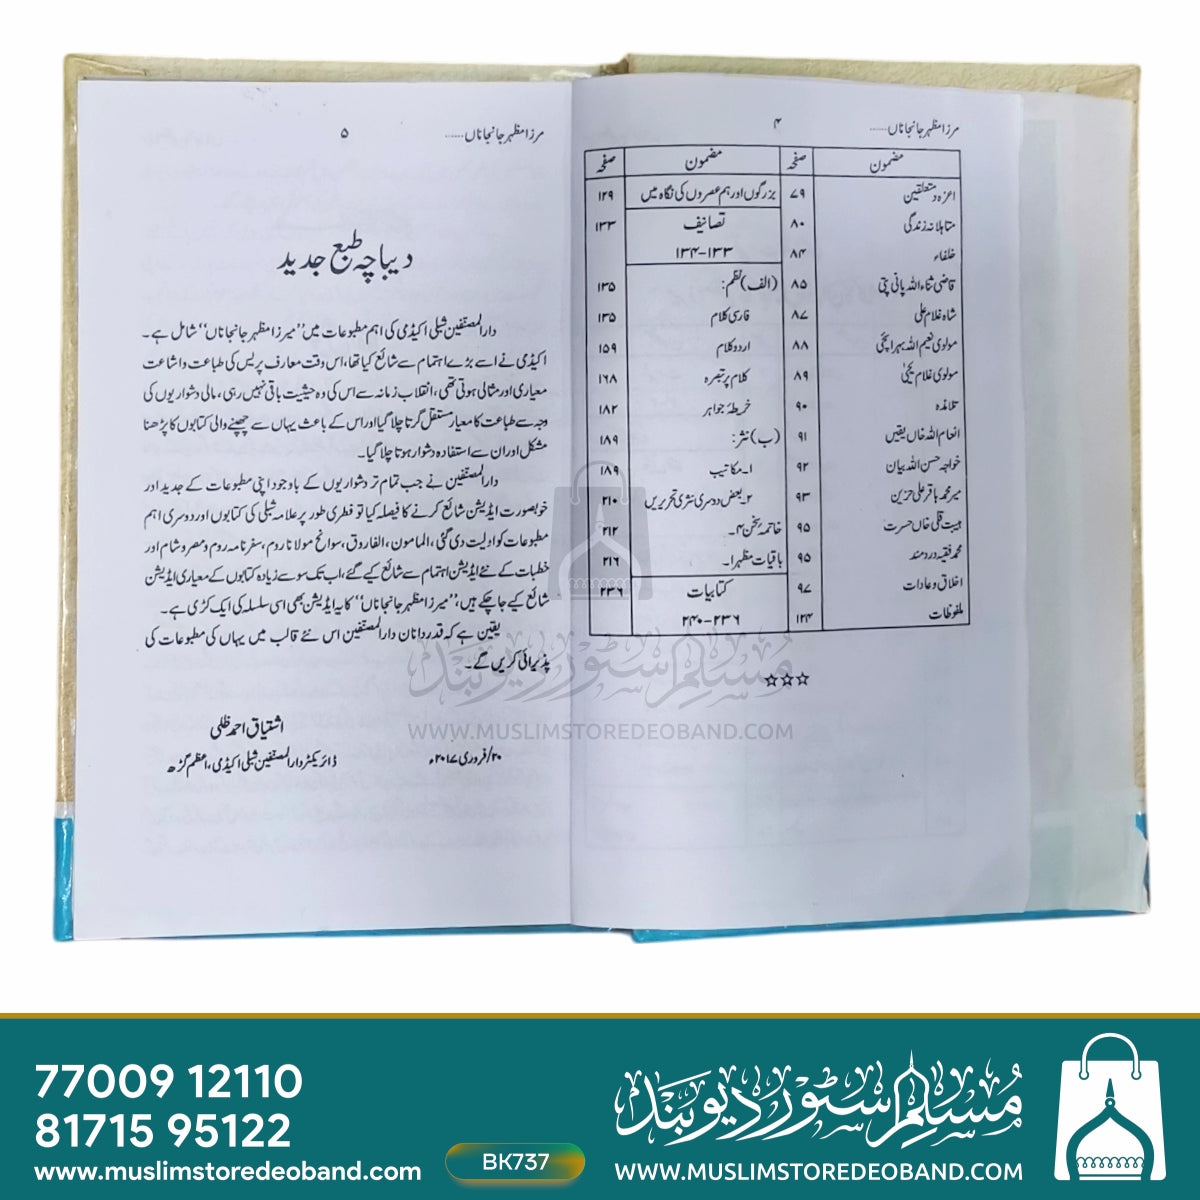 مرزا مظہر جانجاناں...... ۴
مضمون صفحہ مضمون صفحہ
اعزہ و متعلقین ۷۹ بزرگوں اور ہم عصروں کی نگاہ میں ۱۲۹
متاہلانہ زندگی ۸۰ تصانیف ۱۳۳
خلفاء ۸۴ ۱۳۳-۱۳۴
قاضی ثناء اللہ پانی پتی ۸۵ (الف) نظم: ۱۳۵
شاہ غلام علی ۸۷ فارسی کلام ۱۳۵
مولوی نعیم اللہ بہرائچی ۸۸ اردو کلام ۱۵۹
مولوی غلام یحییٰ ۸۹ کلام پر تبصرہ ۱۶۸
تلامذہ ۹۰ خریطۂ جواہر ۱۸۲
انعام اللہ خاں یقین ۹۱ (ب) نثر: ۱۸۹
خواجہ حسن اللہ بیان ۹۲ ۱۔مکاتیب ۱۸۹
میر محمد باقر علی حزین ۹۳ ۲۔بعض دوسری نثری تحریریں ۲۱۰
ہیبت قلی خاں حسرت ۹۵ خاتمہ سخن ۴۔ ۲۱۲
محمد فقیہ دردمند ۹۵ باقیات مظہر ۱۔ ۲۱۶
اخلاق و عادات ۹۷ کتابیات ۲۳۶
ملفوظات ۱۲۴ ۲۳۶-۲۴۰
☆☆☆
مرزا مظہر جانجاناں...... ۵
دیباچہ طبع جدید
دارالمصنفین شبلی اکیڈمی کی اہم مطبوعات میں ’’میرزا مظہر جانجاناں‘‘ شامل ہے۔
اکیڈمی نے اسے بڑے اہتمام سے شائع کیا تھا، اس وقت معارف پریس کی طباعت و اشاعت
معیاری اور مثالی ہوتی تھی، انقلاب زمانہ سے اس کی وہ حیثیت باقی نہیں رہی، مالی دشواریوں کی
وجہ سے طباعت کا معیار مستقل گرتا چلا گیا اور اس کے باعث یہاں سے چھپنے والی کتابوں کا پڑھنا
مشکل اور ان سے استفادہ دشوار ہوتا چلا گیا۔
دارالمصنفین نے جب تمام تر دشواریوں کے باوجود اپنی مطبوعات کے جدید اور
خوبصورت ایڈیشن شائع کرنے کا فیصلہ کیا تو فطری طور پر علامہ شبلی کی کتابوں اور دوسری اہم
مطبوعات کو اولیت دی گئی، المامون، الفاروق، سوانح مولانا روم، سفرنامہ روم و مصر و شام اور
خطبات کے نئے ایڈیشن اہتمام سے شائع کیے گئے، اب تک سو سے زیادہ کتابوں کے معیاری ایڈیشن
شائع کیے جاچکے ہیں، ’’میرزا مظہر جانجاناں‘‘ کا یہ ایڈیشن بھی اسی سلسلہ کی ایک کڑی ہے۔
یقین ہے کہ قدردانان دارالمصنفین اس نئے قالب میں یہاں کی مطبوعات کی
پذیرائی کریں گے۔
اشتیاق احمد ظلی
۲۰/فروری ۲۰۱۷ء ڈائریکٹر دارالمصنفین شبلی اکیڈمی، اعظم گڑھ
مسلم سٹور دیوبند
WWW.MUSLIMSTOREDEOBAND.COM
77009 12110
81715 95122
www.muslimstoredeoband.com
BK737
مسلم سٹور دیوبند
WWW.MUSLIMSTOREDEOBAND.COM